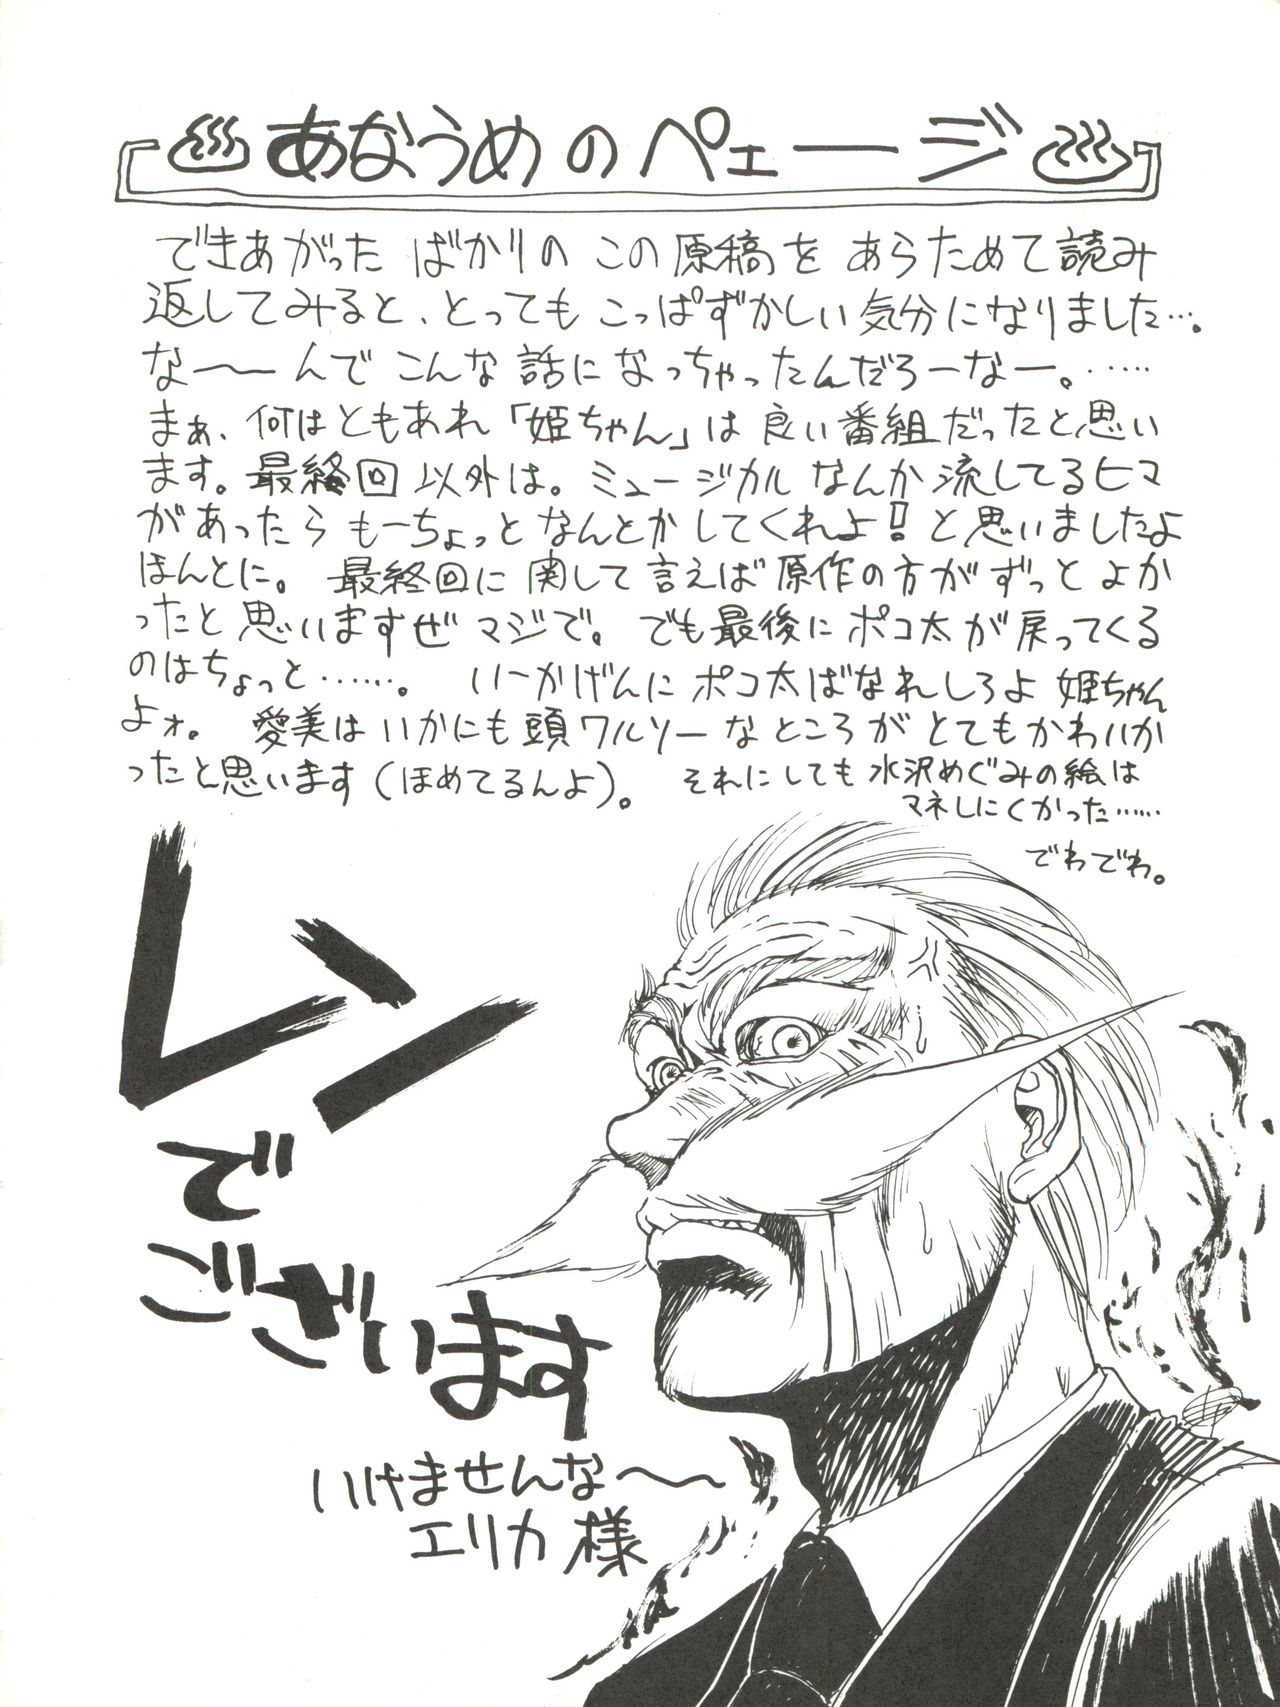 あなうめのペェージ
できあがったばかりのこの原稿をあらためて読み
返してみると、とってもこっぱずかしい気分になりました…。
な〜〜んでこんな話になっちゃったんだろーなー。……
まぁ、何はともあれ「姫ちゃん」は良い番組だったと思い
ます。最終回以外は。ミュージカルなんか流してるヒマ
があったらもーちょっとなんとかしてくれよ！と思いましたよ
ほんとに。最終回に関して言えば原作の方がずっとよか
ったと思いますぜマジで。でも最後にポコ太が戻ってくる
のはちょっと……。いーかげんにポコ太ばなれしろよ姫ちゃん
よォ。愛美はいかにも頭ワルソーなところがとてもかわいか
ったと思います(ほめてるんよ)。それにしても水沢めぐみの絵は
マネしにくかった……
でわでわ。
レン
で
ございます
いけませんな〜〜
エリカ様